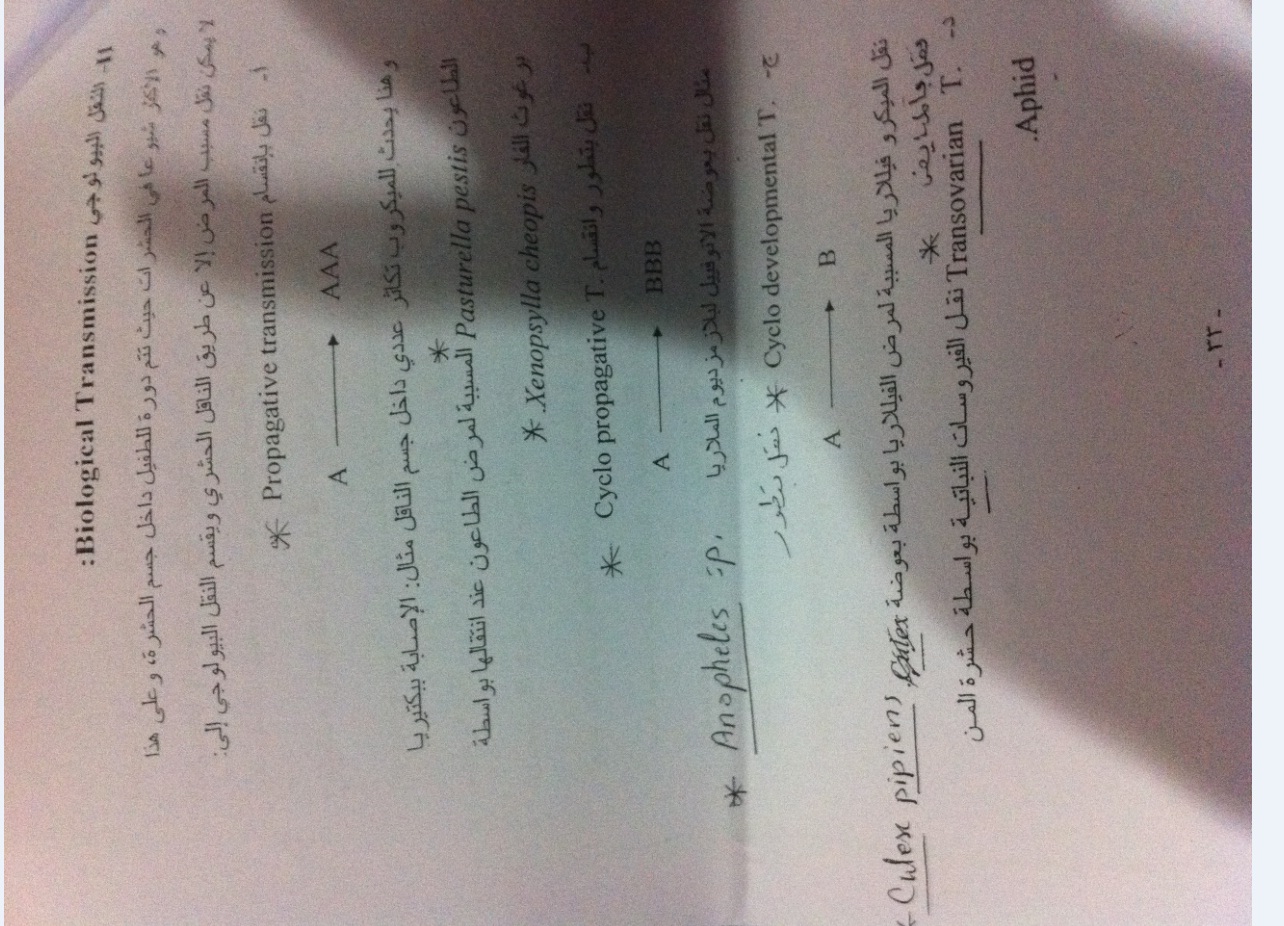 II- النقل البيولوجي Biological Transmission:
وهو الأكثر شيوعا في الحشرات حيث تتم دورة للطفيل داخل جسم الحشرة، وعلى هذا
لا يمكن نقل مسبب المرض إلا عن طريق الناقل الحشري ويقسم النقل البيولوجي إلى:
أ- نقل بانقسام Propagative transmission *
A → AAA
وهنا يحدث للميكروب تكاثر عددي داخل جسم الناقل مثال: الإصابة ببكتيريا
الطاعون Pasturella pestis * المسببة لمرض الطاعون عند انتقالها بواسطة
برغوث الفار Xenopsylla cheopis. *
ب- نقل بتطور وانقسام Cyclo propagative T. *
A → BBB
مثال نقل بعوضة الانوفيل لبلازمزديوم الملاريا
* Anopheles sp.
ج- Cyclo developmental T. * نقل بتطور
A → B
نقل الميكروفيلاريا المسببة لمرض الفيلاريا بواسطة بعوضة Culex
* Culex pipiens
د- Transovarian T. نقل الفيروسات النباتية بواسطة حشرة المن
*
Aphid.
- ٣٢ -